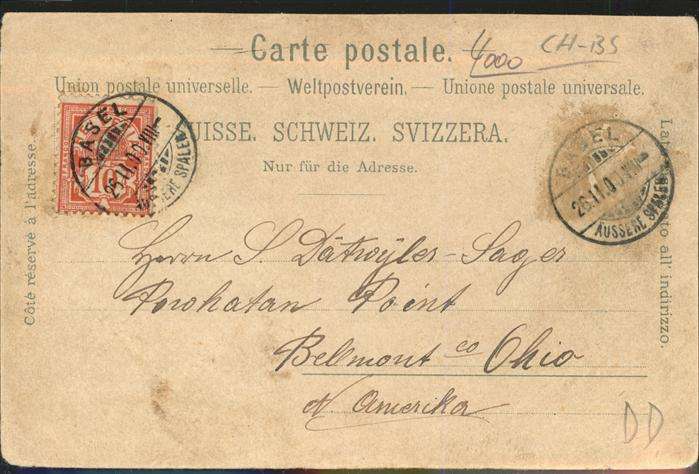 Carte postale.
4000 CH-BS
Union postale universelle. — Weltpostverein. — Unione postale universale.
SUISSE. SCHWEIZ. SVIZZERA.
Nur für die Adresse.
Côté réservé à l'adresse.
BASEL
10
AUSSERE SPALEN
BASEL
26.II.0
ÄUSSERE SPALEN
all' indirizzo.
Herrn S Dätwyler-Sager
Powhatan Point
Bellmont co Ohio
N. Amerika
DD